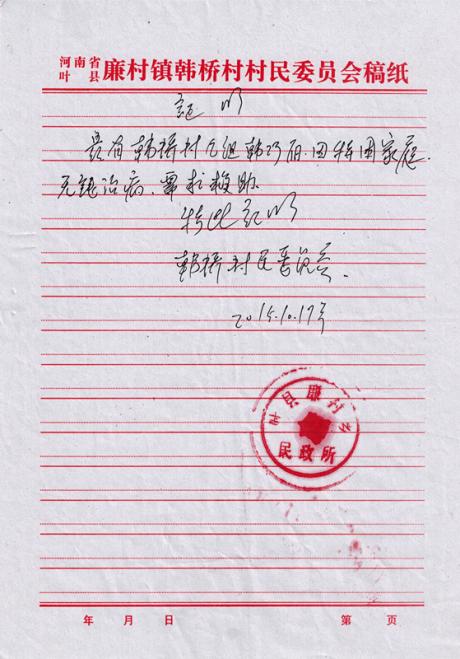 河南省叶县 廉村镇韩桥村村民委员会稿纸
证明
兹有韩桥村七组韩巧丽.因特困家庭.
无钱治病.需求救助.
特此证明
韩桥村民委员会.
2015.10.17号
叶县廉村乡
民政所
年 月 日 第 页